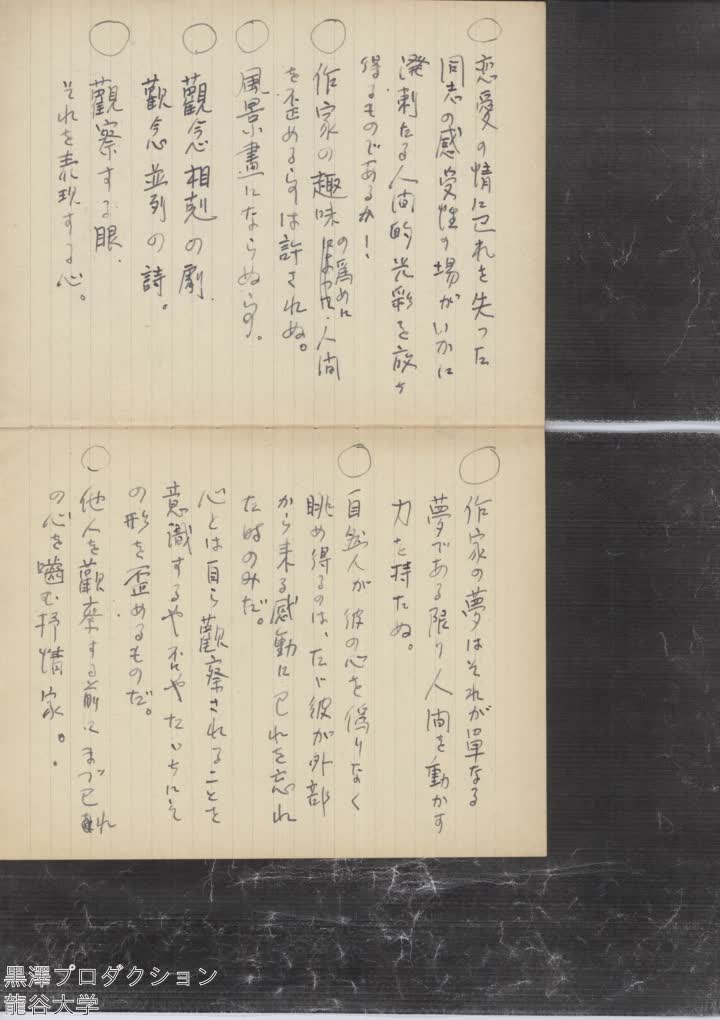 恋愛の情に己れを失った
同志の感受性の場がいかに
溌剌たる人間的光彩を放ケ
得るものであるか！
作家の趣味の爲めに人間
を歪める事は許されぬ。
風景畫にならぬ事。
觀念相剋の劇、
觀念並列の詩。
觀察する眼、
それを表現する心。
作家の夢はそれが單なる
夢である限り人間を動かす
力を持たぬ。
自然人が彼の心を偽りなく
眺め得るのは、たゞ彼が外部
から来る感動に己れを忘れ
た時のみだ。
心とは自ら觀察されることを
意識するや否やたちにそ
の形を歪めるものだ。
他人を觀察する前にまづ己れ
の心を嚙む抒情家。
黒澤プロダクション
龍谷大学